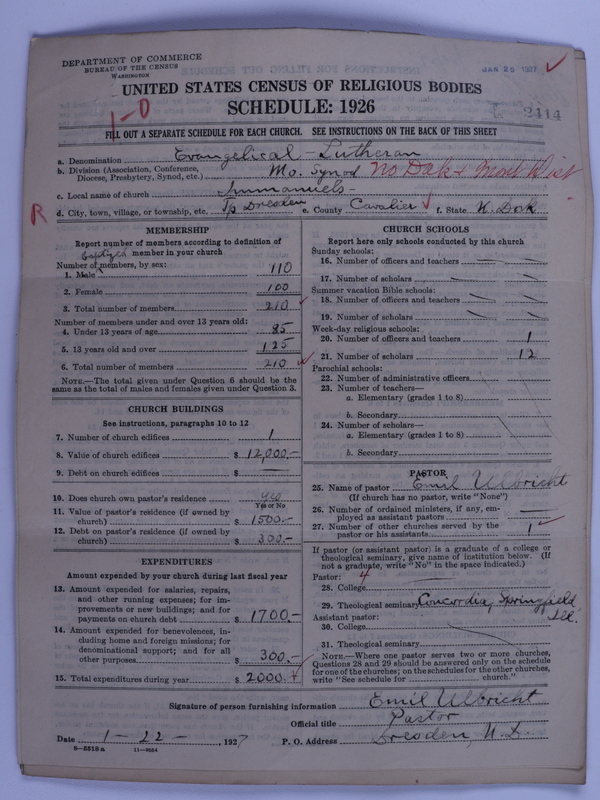 DEPARTMENT OF COMMERCE
BUREAU OF THE CENSUS
WASHINGTON
JAN 25 1927
UNITED STATES CENSUS OF RELIGIOUS BODIES
SCHEDULE: 1926
1-0
2414
FILL OUT A SEPARATE SCHEDULE FOR EACH CHURCH. SEE INSTRUCTIONS ON THE BACK OF THIS SHEET
a. Denomination Evangelical - Lutheran
b. Division (Association, Conference, Diocese, Presbytery, Synod, etc.) Mo. Synod No Dak & Mont Dist
c. Local name of church Immanuels -
R
d. City, town, village, or township, etc. Tp Dresden e. County Cavalier f. State N. Dak
MEMBERSHIP
Report number of members according to definition of
baptized member in your church
Number of members, by sex:
1. Male 110
2. Female 100
3. Total number of members 210
Number of members under and over 13 years old:
4. Under 13 years of age 85
5. 13 years old and over 125
6. Total number of members 210
NOTE.—The total given under Question 6 should be
same as the total of males and females given under Question 3.
CHURCH BUILDINGS
See instructions, paragraphs 10 to 12
7. Number of church edifices 1
8. Value of church edifices $ 12,000.—
9. Debt on church edifices $ —
10. Does church own pastor's residence yes
Yes or No
11. Value of pastor's residence (if owned by
church) $ 1500.-
12. Debt on pastor's residence (if owned by
church) $ 300.-
EXPENDITURES
Amount expended by your church during last fiscal year
13. Amount expended for salaries, repairs,
and other running expenses; for im-
provements or new buildings; and for
payments on church debt $ 1700.-
14. Amount expended for benevolences, in-
cluding home and foreign missions; for
denominational support; and for all
other purposes $ 300.-
15. Total expenditures during year $ 2000.-
CHURCH SCHOOLS
Report here only schools conducted by this church
Sunday schools:
16. Number of officers and teachers
17. Number of scholars
Summer vacation Bible schools:
18. Number of officers and teachers
19. Number of scholars
Week-day religious schools:
20. Number of officers and teachers 1
21. Number of scholars 12
Parochial schools:
22. Number of administrative officers
23. Number of teachers—
a. Elementary (grades 1 to 8)
b. Secondary
24. Number of scholars—
a. Elementary (grades 1 to 8)
b. Secondary
PASTOR
25. Name of pastor Emil Ulbricht
(If church has no pastor, write "None")
26. Number of ordained ministers, if any, em-
ployed as assistant pastors —
27. Number of other churches served by the
pastor or his assistants 1
If pastor (or assistant pastor) is a graduate of a college or
theological seminary, give name of institution below. (If
not a graduate, write "No" in the space indicated.)
Pastor: 4
28. College
29. Theological seminary Concordia, Springfield Ill.
Assistant pastor:
30. College
31. Theological seminary
NOTE.—Where one pastor serves two or more churches,
Questions 28 and 29 should be answered only on the schedule
for one of the churches; on the schedules for the other churches,
write "See schedule for church."
Signature of person furnishing information Emil Ulbricht
Official title Pastor
Date 1-22-, 1927 P. O. Address Dresden, N.D.
8-5518a 11-9054